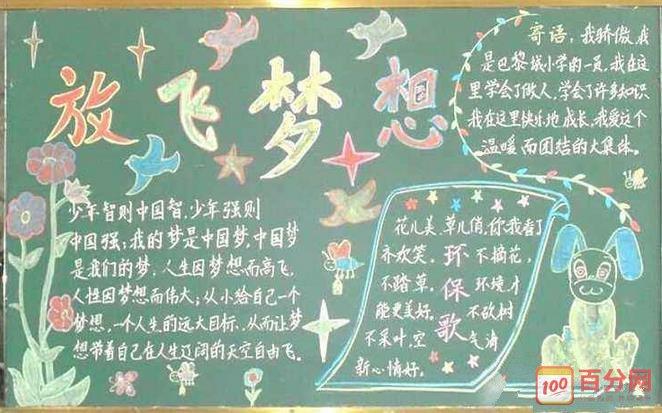 放飞梦想
寄语，我骄傲，我
是巴黎城小学的一员，我在这
里学会了做人，学会了许多知识
我在这里快乐地成长，我爱这个
温暖而团结的大集体。
少年智则中国智，少年强则
中国强；我的梦是中国梦，中国梦
是我们的梦，人生因梦想而高飞，
人性因梦想而伟大；从小给自己一个
梦想，一个人生的远大目标，从而让梦
想带着自己在人生辽阔的天空自由飞。
环保歌
花儿美，草儿俏，你我看了
齐欢笑。不摘花，
不踏草，环境才
能更美好。不砍树
不采叶，空气清
新心情好。
百分网
100